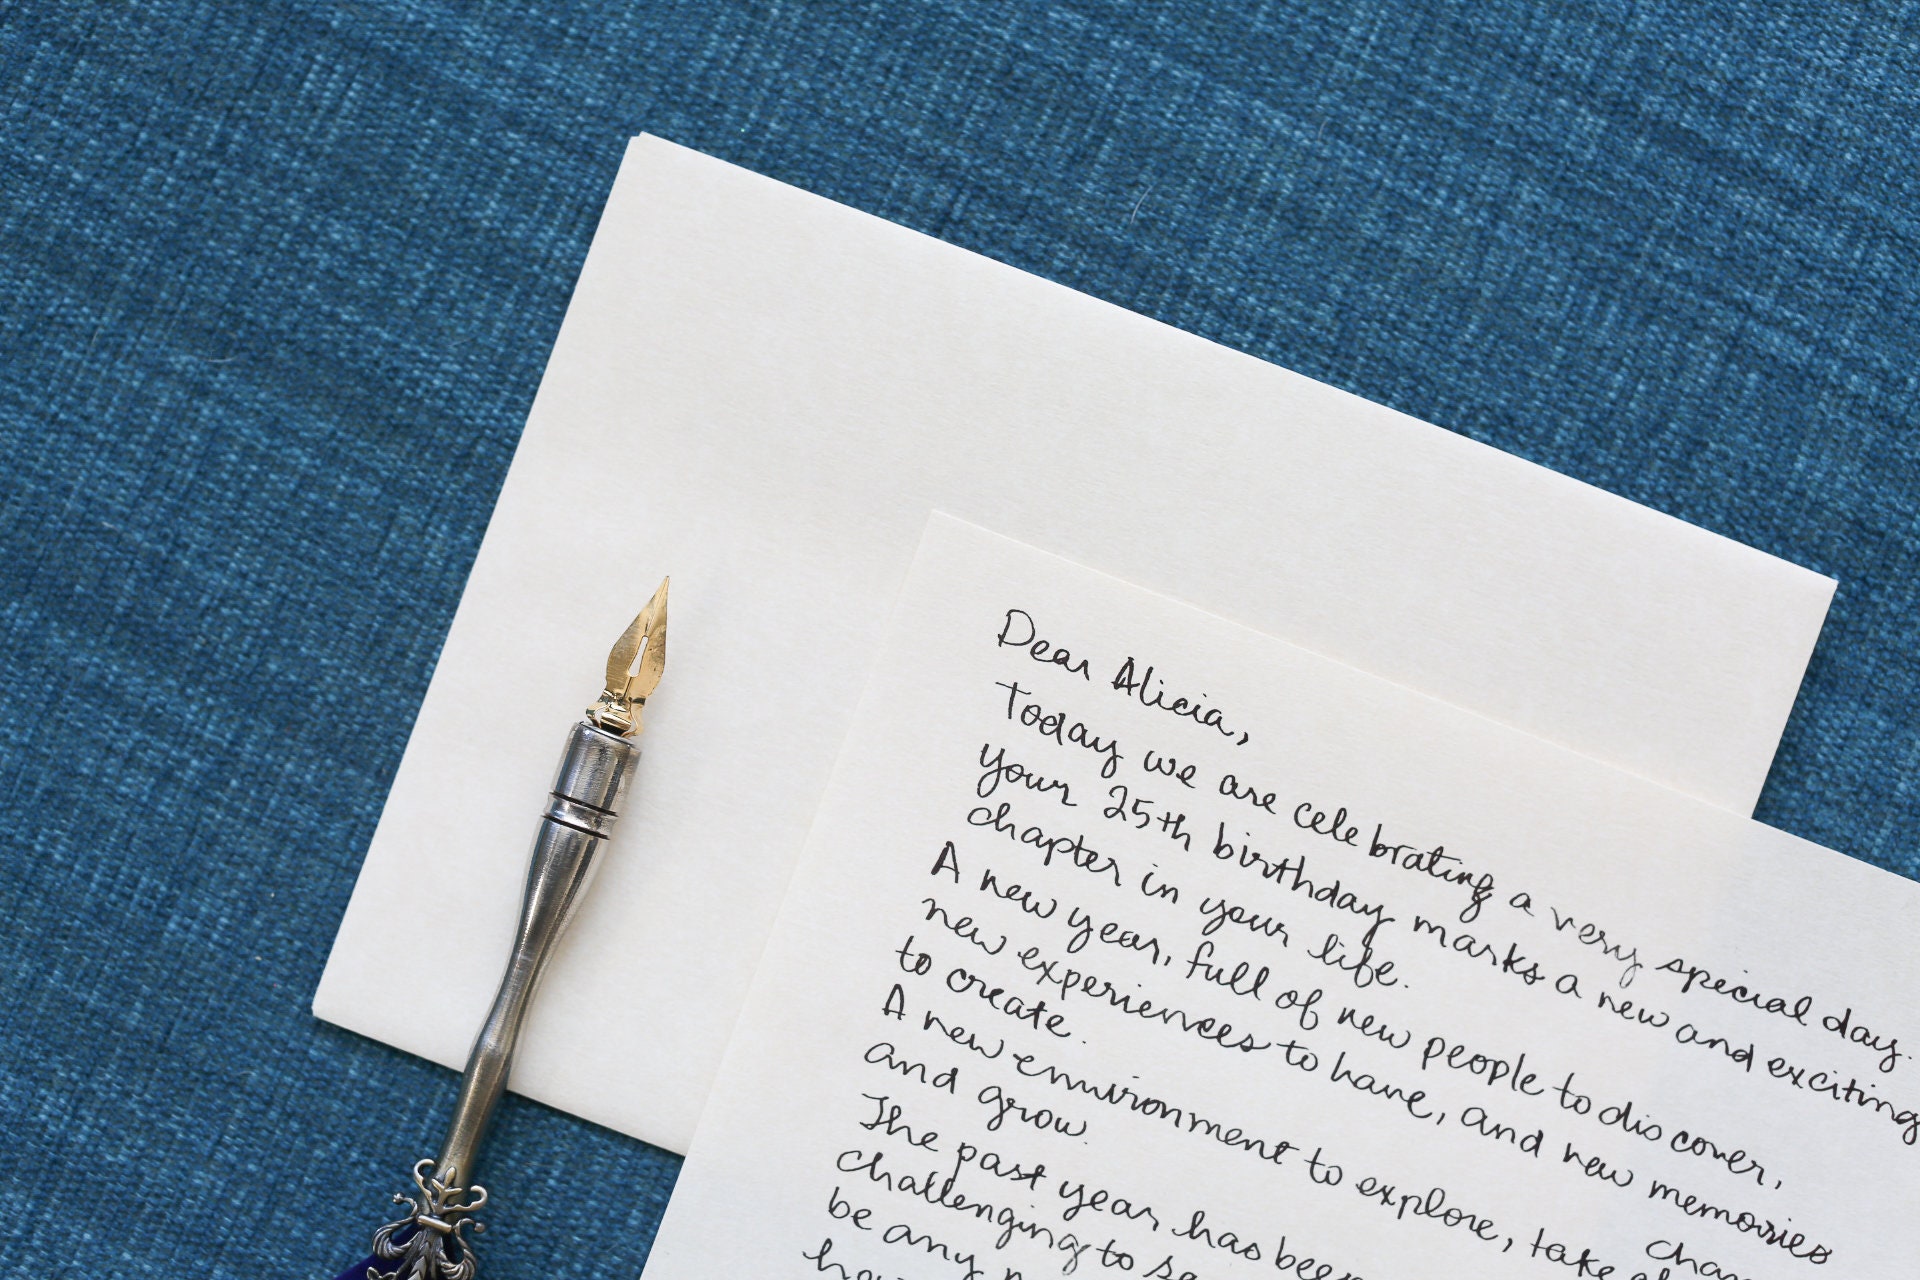 Dear Alicia,
Today we are celebrating a very special day.
Your 25th birthday marks a new and exciting
chapter in your life.
A new year, full of new people to discover,
new experiences to have, and new memories
to create.
A new environment to explore, take chan
and grow.
The past year has been
challenging to sa
be any